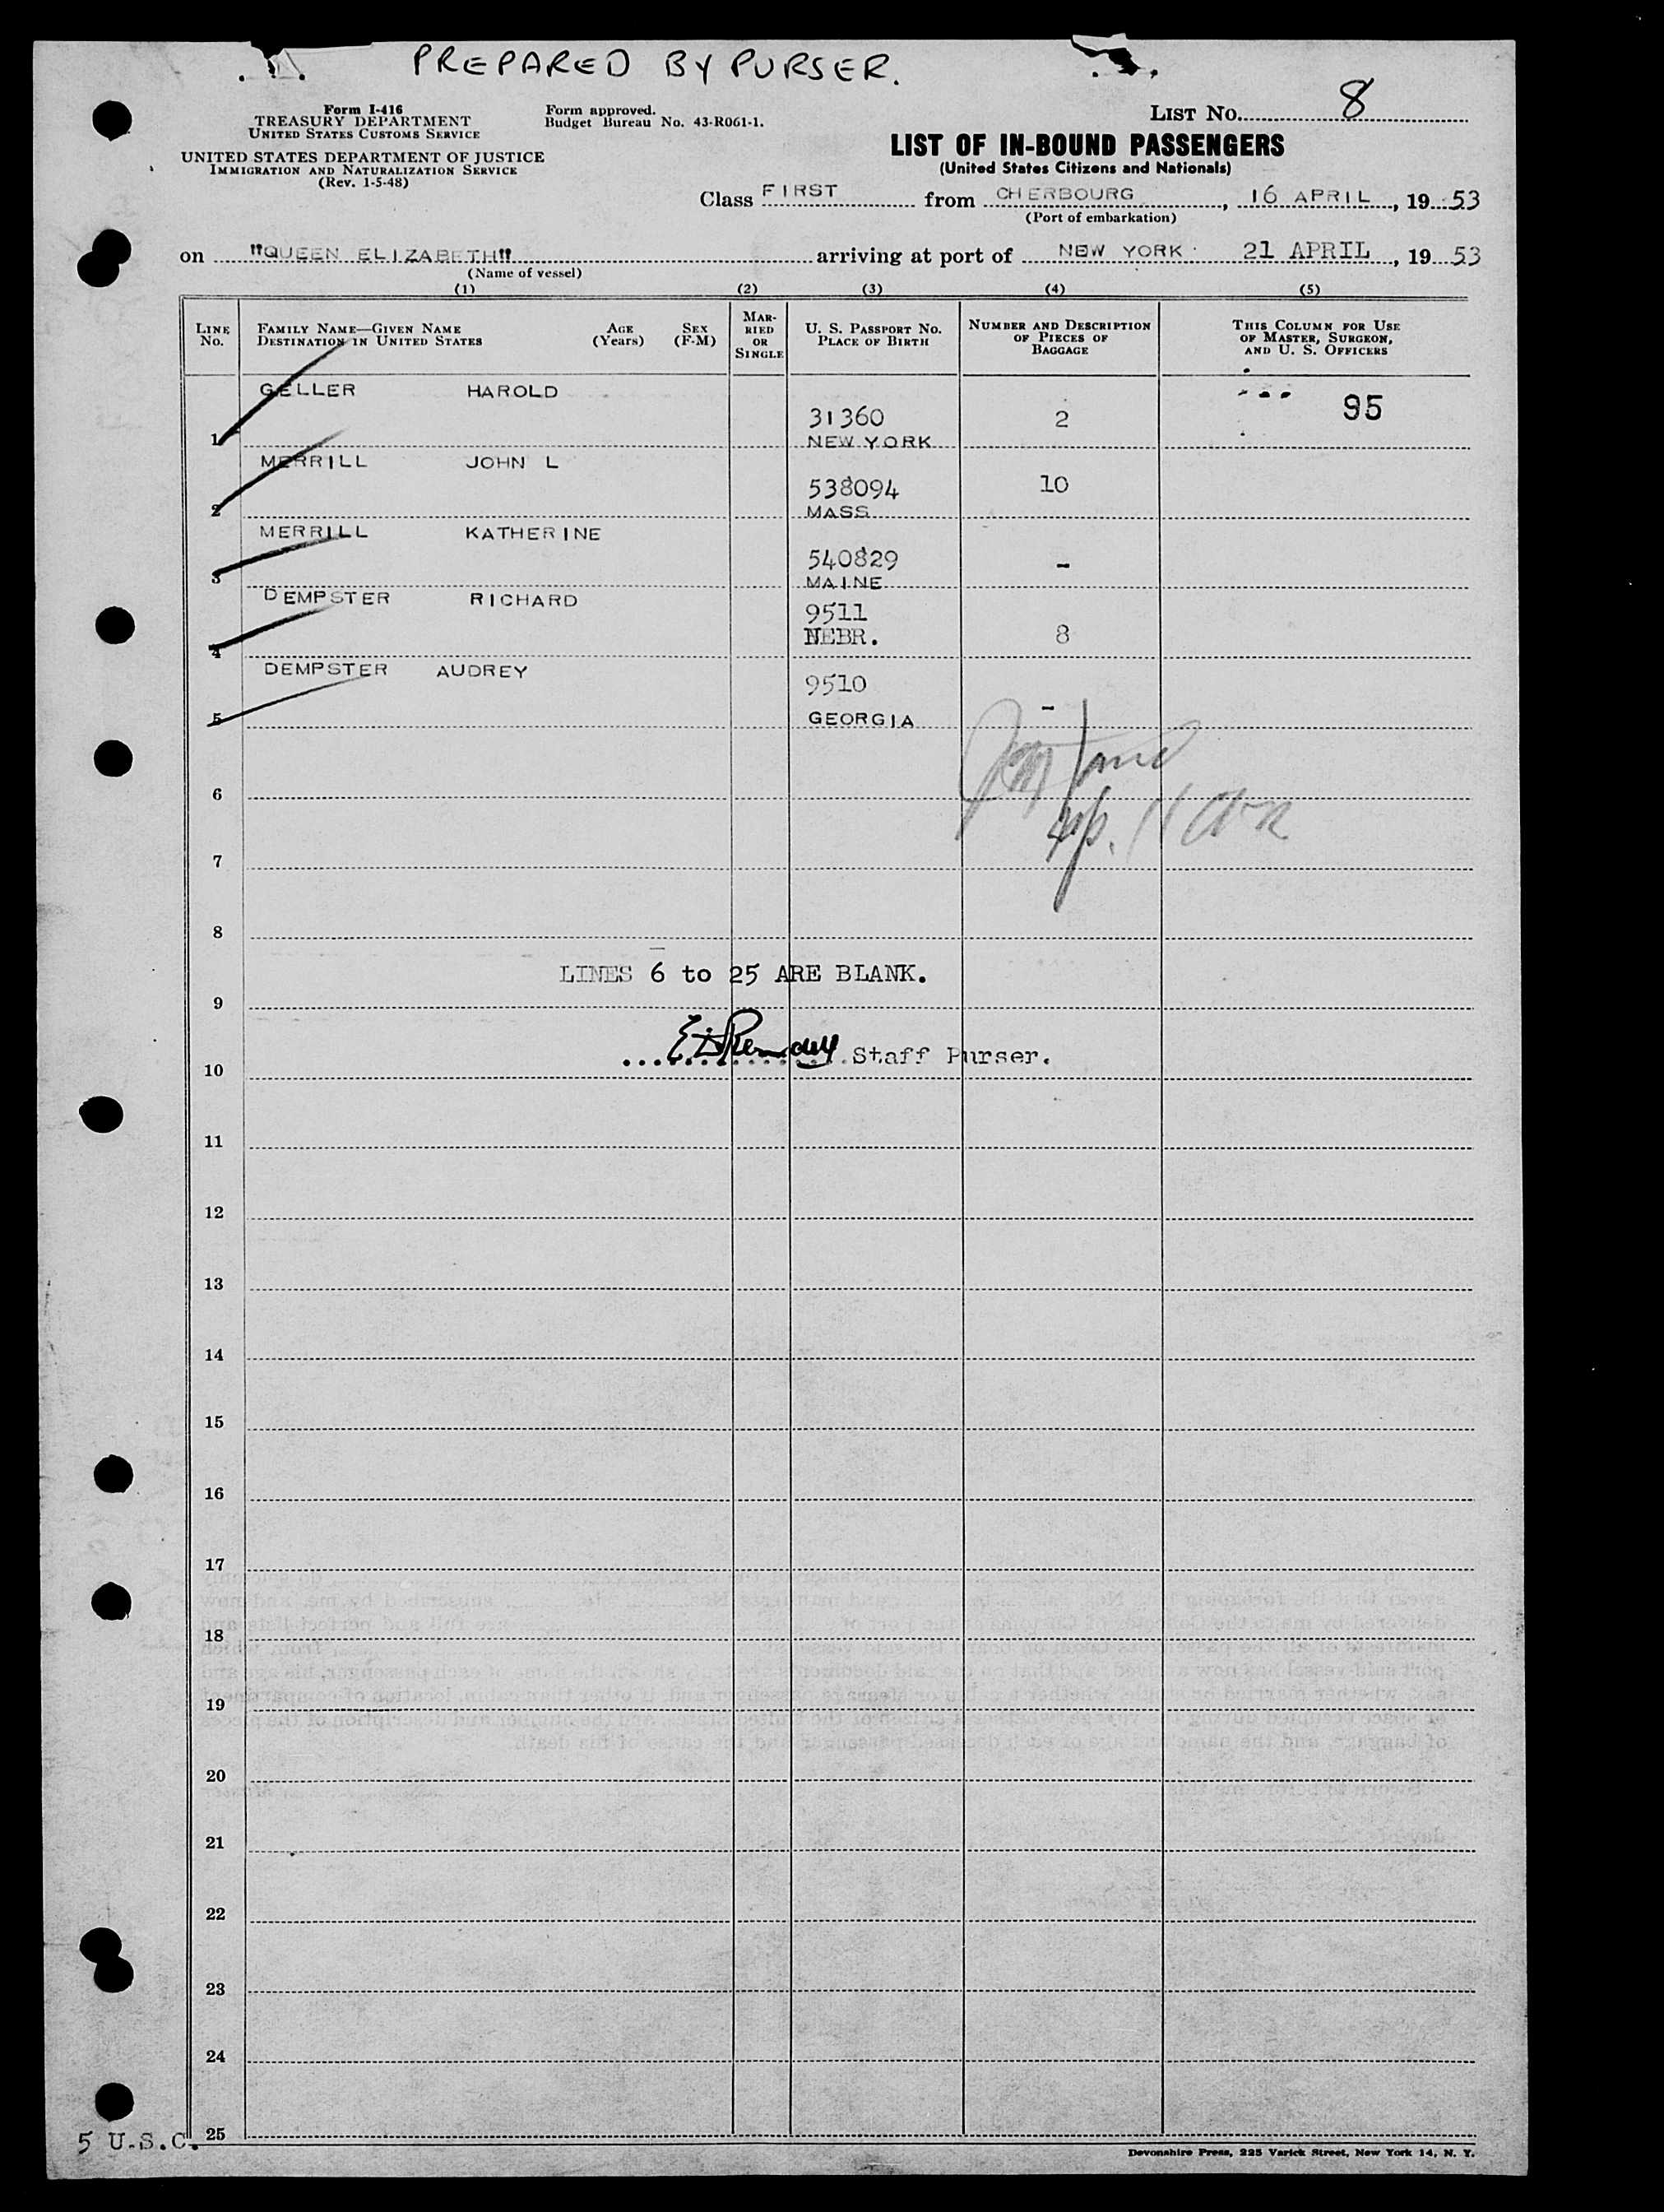 PREPARED BY PURSER.
Form I-416
TREASURY DEPARTMENT
UNITED STATES CUSTOMS SERVICE
UNITED STATES DEPARTMENT OF JUSTICE
IMMIGRATION AND NATURALIZATION SERVICE
(Rev. 1-5-48)
Form approved.
Budget Bureau No. 43-R061-1.
LIST NO. 8
LIST OF IN-BOUND PASSENGERS
(United States Citizens and Nationals)
Class FIRST from CHERBOURG, 16 APRIL, 1953
(Port of embarkation)
on "QUEEN ELIZABETH" arriving at port of NEW YORK 21 APRIL, 1953
(Name of vessel)
(1) (2) (3) (4) (5)
LINE NO.
FAMILY NAME—GIVEN NAME
DESTINATION IN UNITED STATES
AGE (Years)
SEX (F-M)
MARRIED OR SINGLE
U. S. PASSPORT NO.
PLACE OF BIRTH
NUMBER AND DESCRIPTION OF PIECES OF BAGGAGE
THIS COLUMN FOR USE OF MASTER, SURGEON, AND U. S. OFFICERS
1 GELLER HAROLD 31360 2 95
NEW YORK
2 MERRILL JOHN L 538094 10
MASS
3 MERRILL KATHERINE 540829 -
MAINE
4 DEMPSTER RICHARD 9511
NEBR. 8
5 DEMPSTER AUDREY 9510 -
GEORGIA
6
7
8
LINES 6 to 25 ARE BLANK.
9
Staff Purser.
10
11
12
13
14
15
16
17
18
19
20
21
22
23
24
25
5 U.S.C.
Devonshire Press, 225 Varick Street, New York 14, N. Y.